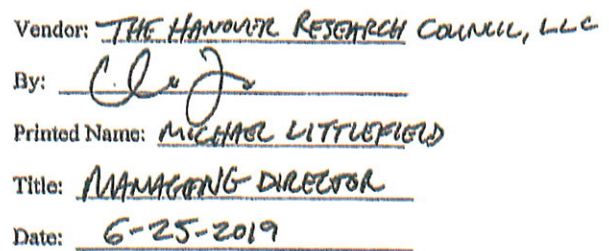 Vendor: THE HANOVER RESEARCH COUNCIL, LLC
By:
Printed Name: MICHAEL LITTLEFIELD
Title: MANAGING DIRECTOR
Date: 6-25-2019